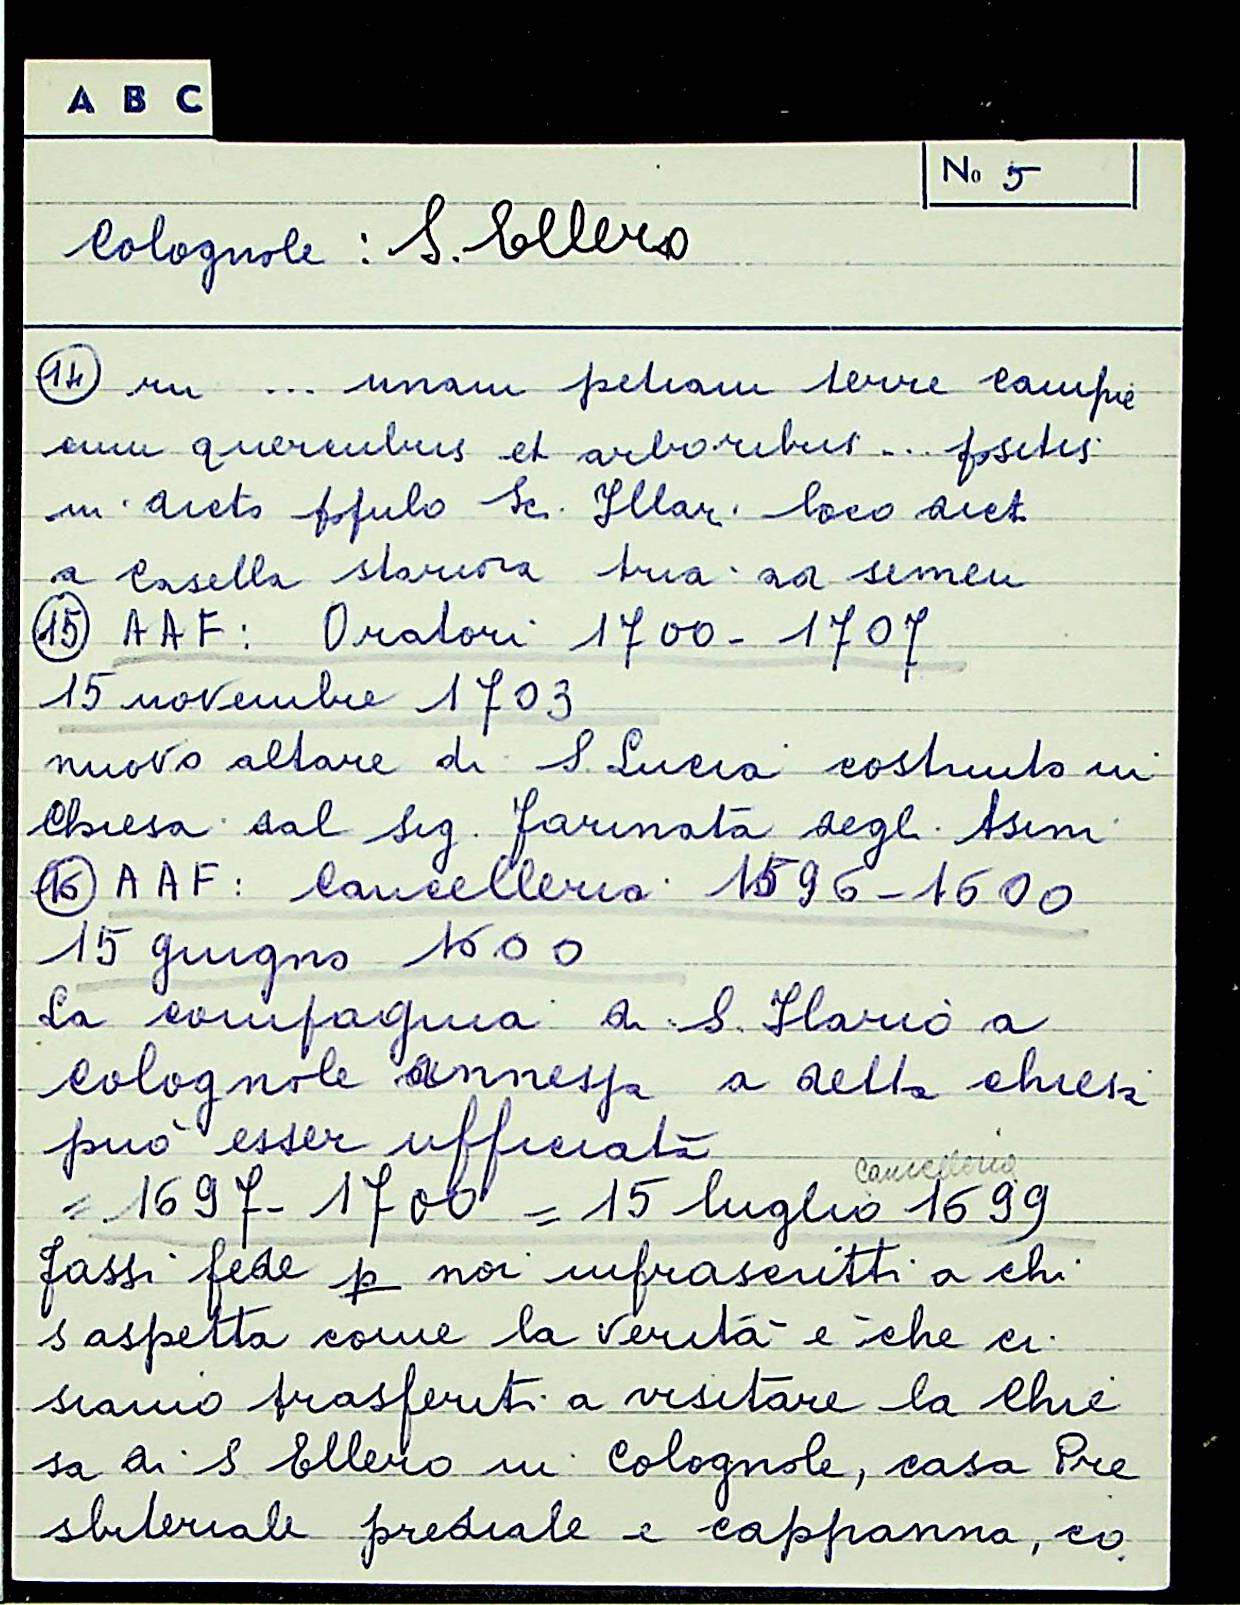 A B C
No 5
Colognole : S. Ellero
14 in ... unam petiam terre campie
cum quercubus et arboribus ... positis
in dicto populo Sc. Illar. loco dict
a Casella stariora tria ad semen
15 AAF: Oratori 1700-1707
15 novembre 1703
nuovo altare di S. Lucia costruito in
Chiesa dal Sig. Farinata degli Asini
16 AAF: Cancelleria 1596-1600
15 giugno 1600
La compagnia di S. Ilario a
Colognole annessa a detta chiesa
può esser ufficiata
Cancelleria
= 1697-1700 = 15 luglio 1699
Fassi fede p noi infrascritti a chi
s aspetta come la verità e che ci
siamo trasferiti a visitare la Chie
sa di S Ellero in Colognole, casa Pre
sbiteriale prediale e cappanna, co